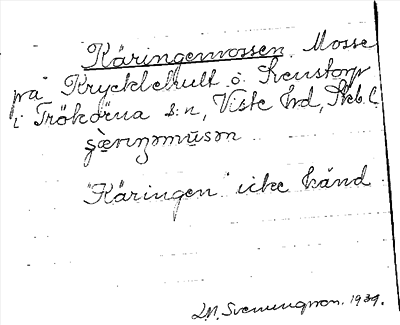 Käringemossen. Mosse
på Krycklehult o. Svenstorp
i Trökörna s:n, Viste hrd, Skb. l.
"Käringen" icke känd
L.M. Svenungsson. 1939.